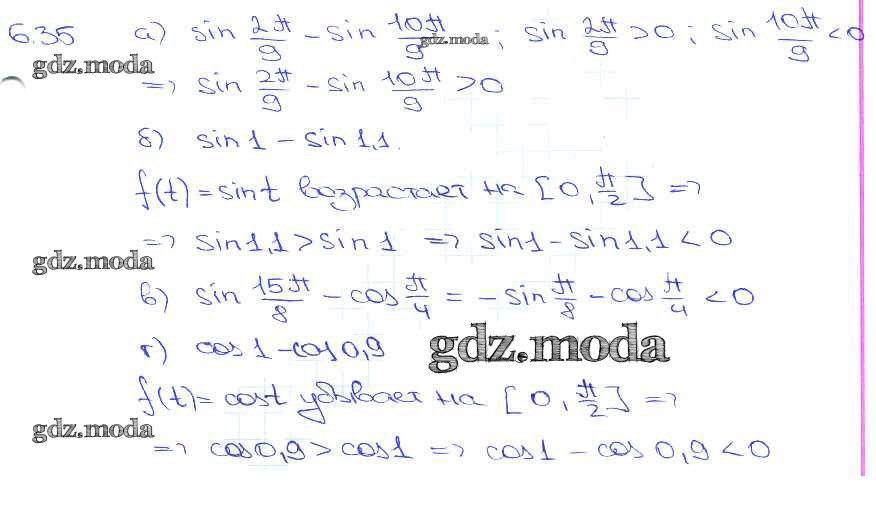 6.35 а) sin 2π/9 − sin 10π/9 ; sin 2π/9 > 0 ; sin 10π/9 < 0
gdz.moda
gdz.moda
=> sin 2π/9 − sin 10π/9 > 0
б) sin 1 − sin 1,1.
f(t) = sin t возрастает на [0, π/2] =>
=> sin 1,1 > sin 1 => sin 1 − sin 1,1 < 0
gdz.moda
в) sin 15π/8 − cos π/4 = − sin π/8 − cos π/4 < 0
г) cos 1 − cos 0,9
gdz.moda
f(t) = cos t убывает на [0, π/2] =>
gdz.moda
=> cos 0,9 > cos 1 => cos 1 − cos 0,9 < 0